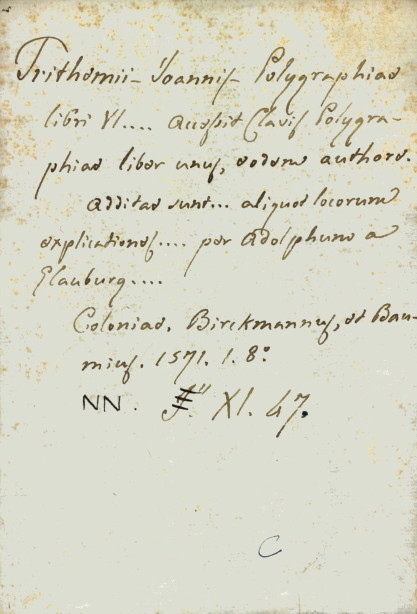 Trithemii Joannis Polygraphiae
libri VI.... accessit Clavis Polygra-
phiae liber unus, eodem authore.
Additae sunt... aliquot locorum
explicationes.... per Adolphum a
Glauburg....
Coloniae, Birckmannus, et Bau-
mius. 1571. 1. 8°
NN. XI. 47.
C